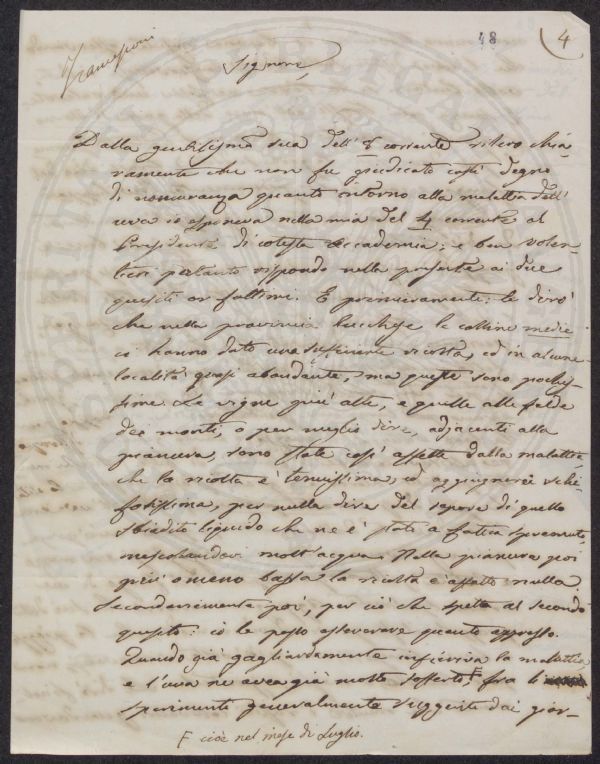 Francesconi
48
4
Signore,
Dalla gentilissima sua dell' 8 corrente rilevo chia-
ramente che non fu giudicato così degno
di noncuranza quanto intorno alla malattia dell'
uva io esponeva nella mia del 4 corrente al
Presidente di cotesta Accademia; e ben volen-
tieri pertanto rispondo nella presente ai due
quesiti or fattimi. E primieramente: le dirò
che nella provincia lucchese le colline medie
ci hanno dato una sufficiente ricolta, ed in alcune
località quasi abondante, ma queste sono pochis-
sime. Le vigne più alte, e quelle alle falde
dei monti, o per meglio dire, adjacenti alla
pianura, sono state così affette dalla malattia
che la ricolta è tenuissima, ed aggiungerei schi-
fosissima, per nulla dire del sapore di quello
sbiadito liquido che ne è stato a fatica spremuto,
mescolandovi molt' acqua. Nella pianura poi
più o meno bassa la ricolta è affatto nulla
Secondariamente poi, per ciò che spetta al secondo
quesito: io le posso asseverare quanto appresso.
Quando già gagliardamente infieriva la malattia,
e l'uva ne avea già molto sofferto, fra li
sperimenti generalmente suggeriti dai gior-
F cioè nel mese di Luglio.